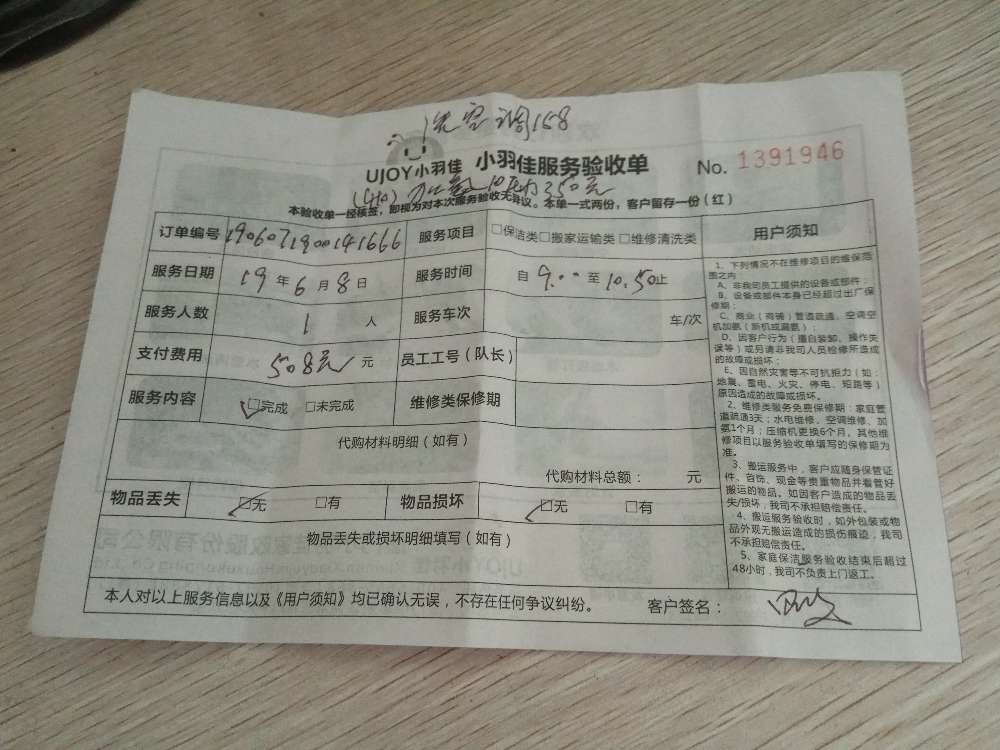 洗空调158
UJOY小羽佳 小羽佳服务验收单 No. 1391946
10压力350元
本验收单一经核签，即视为对本次服务验收无异议。本单一式两份，客户留存一份（红）
订单编号 1906071900141666 服务项目 □保洁类□搬家运输类□维修清洗类
服务日期 19年6月8日 服务时间 自9.00至10.50止
服务人数 1人 服务车次 车/次
支付费用 508元 元 员工工号（队长）
服务内容 □完成 □未完成 维修类保修期
代购材料明细（如有）
代购材料总额： 元
物品丢失 □无 □有 物品损坏 □无 □有
物品丢失或损坏明细填写（如有）
本人对以上服务信息以及《用户须知》均已确认无误，不存在任何争议纠纷。 客户签名：
用户须知
1、下列情况不在维修项目的维保范
围之内
A、非我司员工提供的设备或部件；
B、设备或部件本身已经超过出厂保
修期；
C、商业（商铺）管道疏通、空调空
机加氨（新机或漏氨）；
D、因客户行为（擅自装卸、操作失
误等）或另请非我司人员检修所造成
的故障或损坏；
E、因自然灾害等不可抗拒力（如：
地震、雷电、火灾、停电、短路等）
原因造成的故障或损坏。
2、维修类服务免费保修期：家庭管
道疏通3天；水电维修、空调维修、加
氨1个月；压缩机更换6个月。其他维
修项目以服务验收单填写的保修期为
准。
3、搬运服务中，客户应随身保管证
件、首饰、现金等贵重物品并看管好
搬运的物品。如因客户造成的物品丢
失/损坏，我司不承担赔偿责任。
4、搬运服务验收时，如外包装或物
品外观无搬运造成的损伤痕迹，我司
不承担赔偿责任。
5、家庭保洁服务验收结束后超过
48小时，我司不负责上门返工。